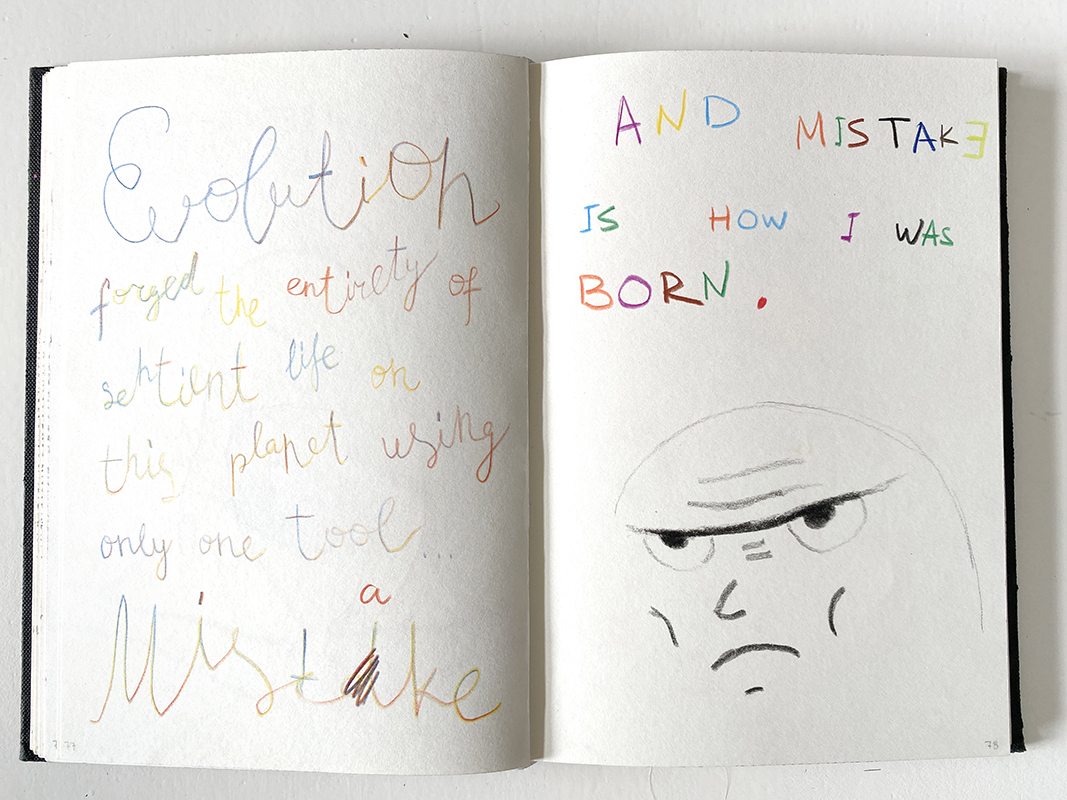 Evolution
forged the entirety of
sentient life on
this planet using
only one tool...
a
Mistake
77
AND MISTAKE
IS HOW I WAS
BORN.
78